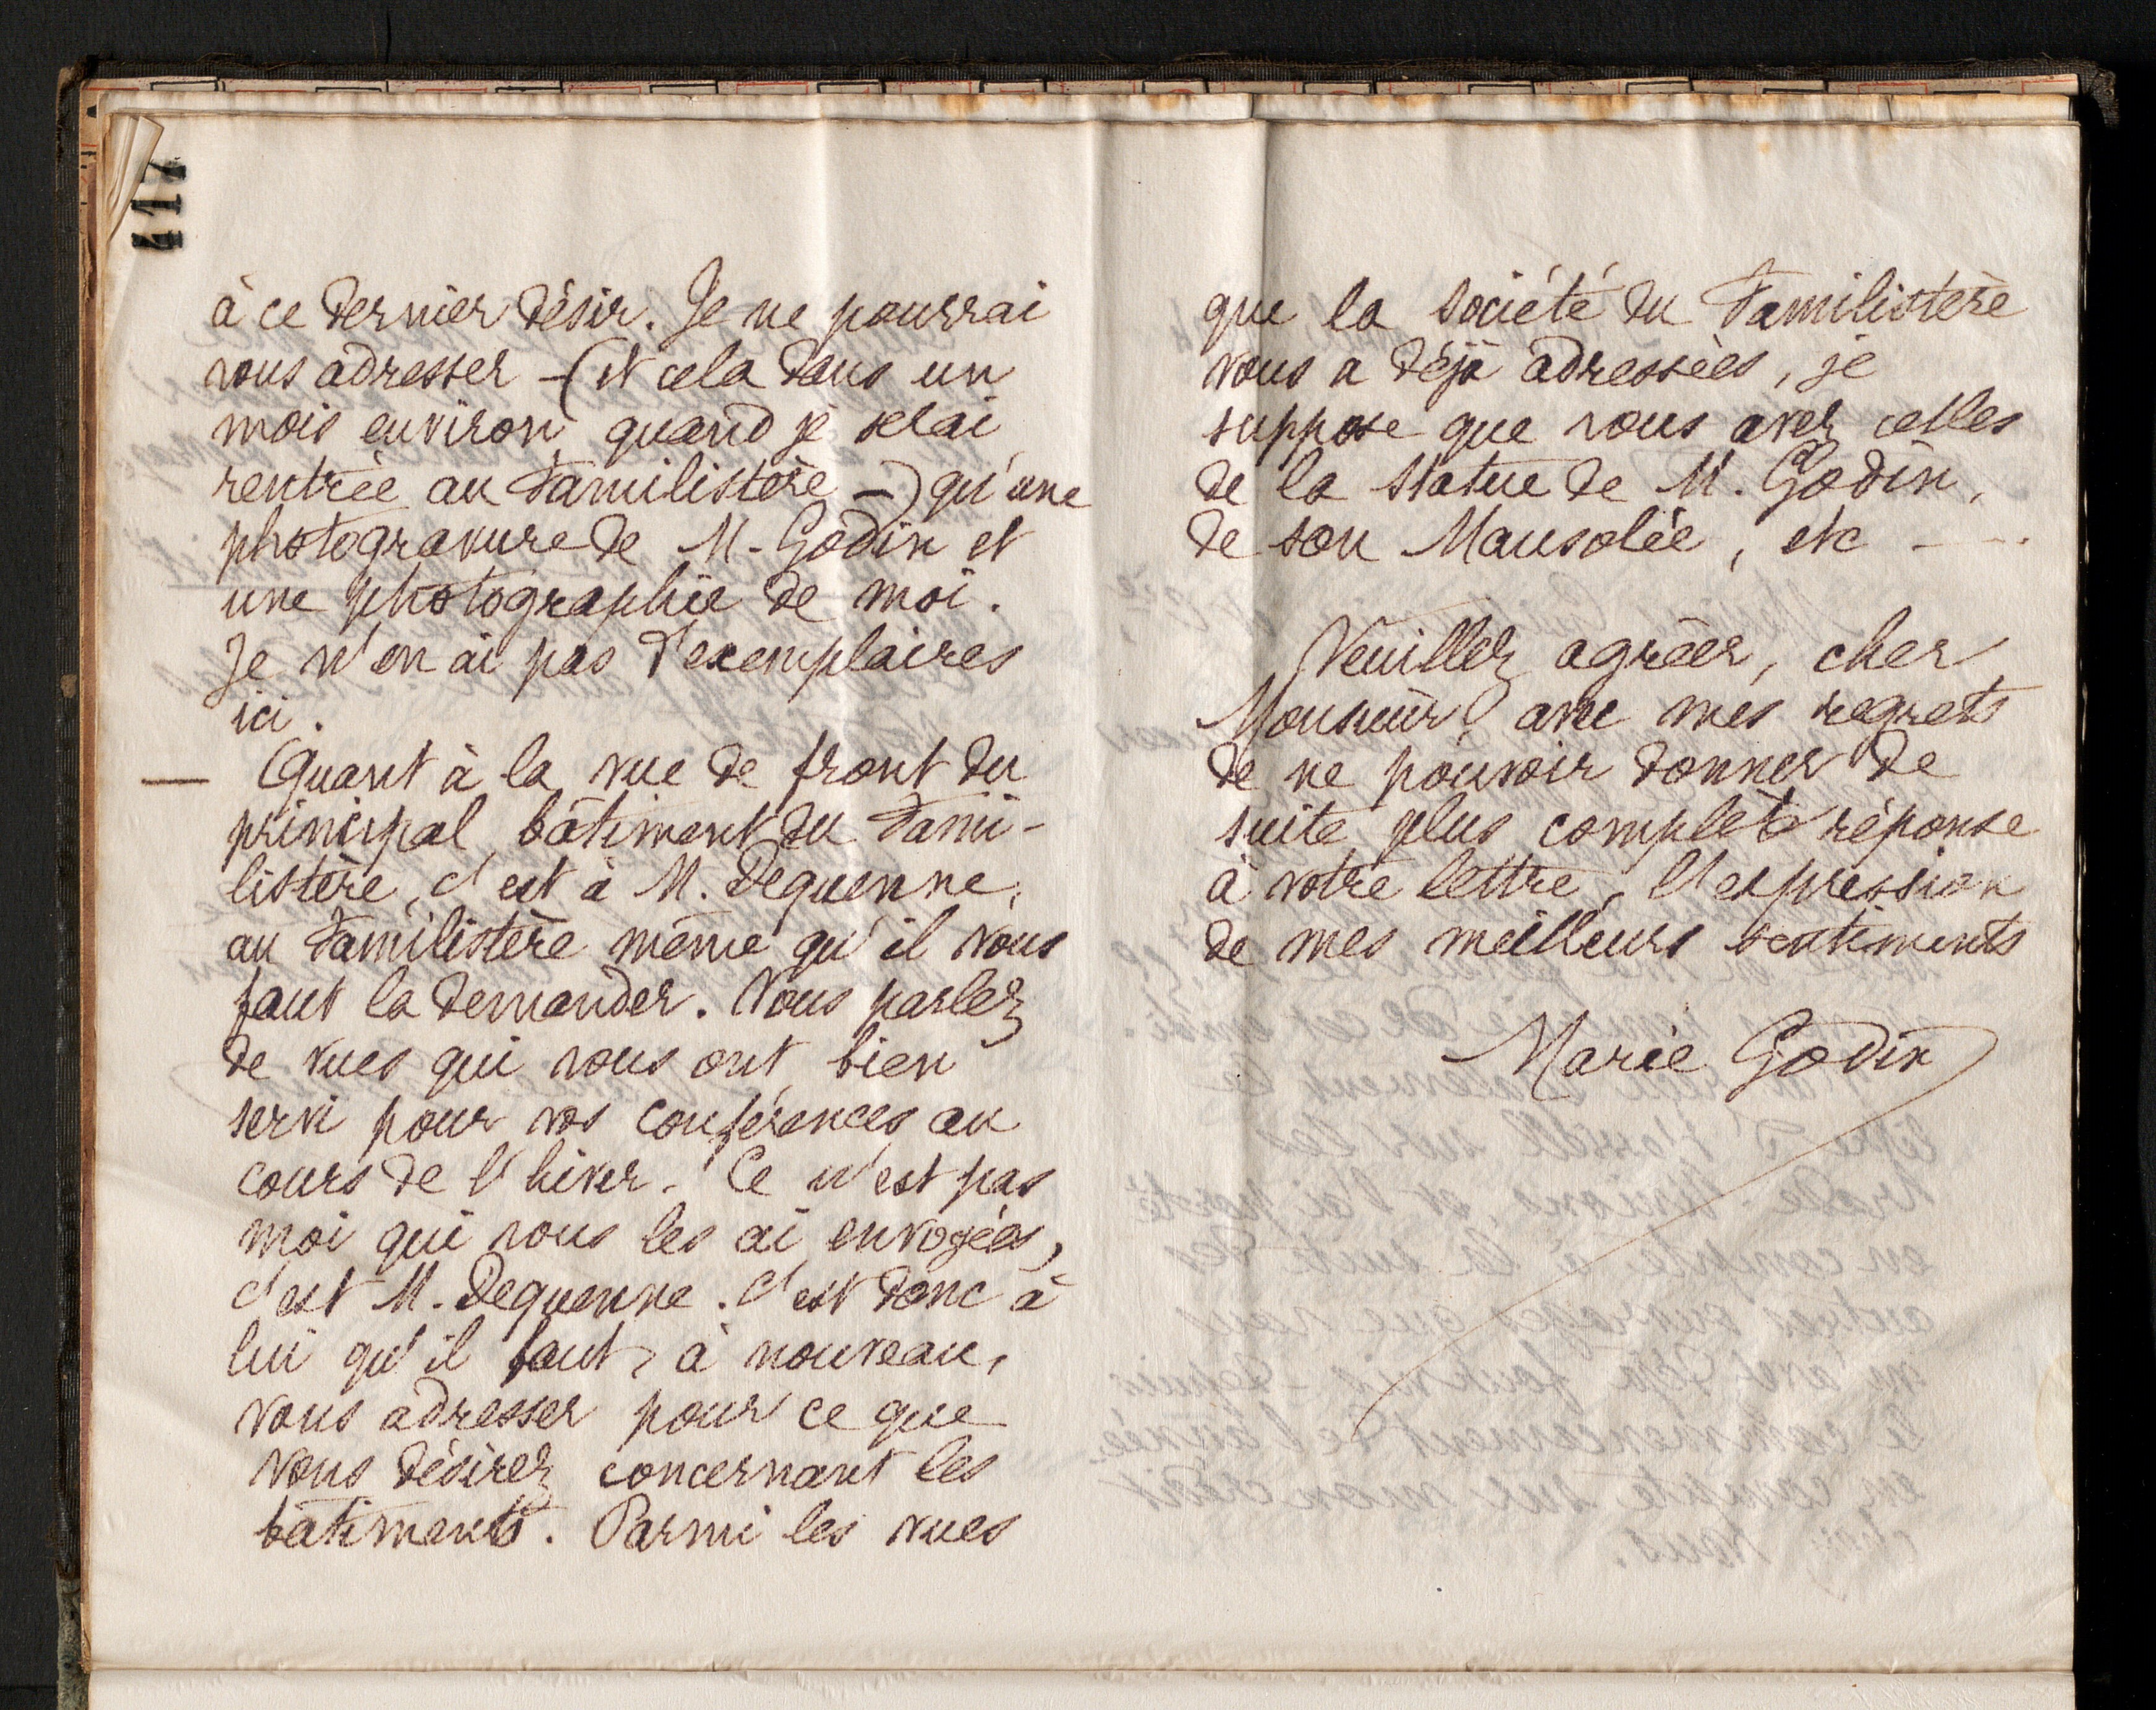 117
à ce dernier désir. Je ne pourrai
vous adresser – (et cela dans un
mois environ quand je serai
rentrée au Familistère –) qu'une
photogravure de M. Godin et
une photographie de moi.
Je n'en ai pas d'exemplaires
ici.
— Quant à la vue de front du
principal bâtiment du Fami-
listère, c'est à M. Dequenne,
au Familistère même qu'il vous
faut la demander. Vous parlez
de vues qui vous ont bien
servi pour vos conférences au
cours de l'hiver. Ce n'est pas
moi qui vous les ai envoyées,
c'est M. Dequenne. C'est donc à
lui qu'il faut, à nouveau,
vous adresser pour ce que
vous désirez concernant les
bâtiments. Parmi les vues
que la Société du Familistère
vous a déjà adressées, je
suppose que vous avez celles
de la statue de M. Godin,
de son Mausolée, etc –.
Veuillez agréer, cher
Monsieur, avec mes regrets
de ne pouvoir donner de
suite plus complète réponse
à votre lettre, l'expression
de mes meilleurs sentiments
Marie Godin